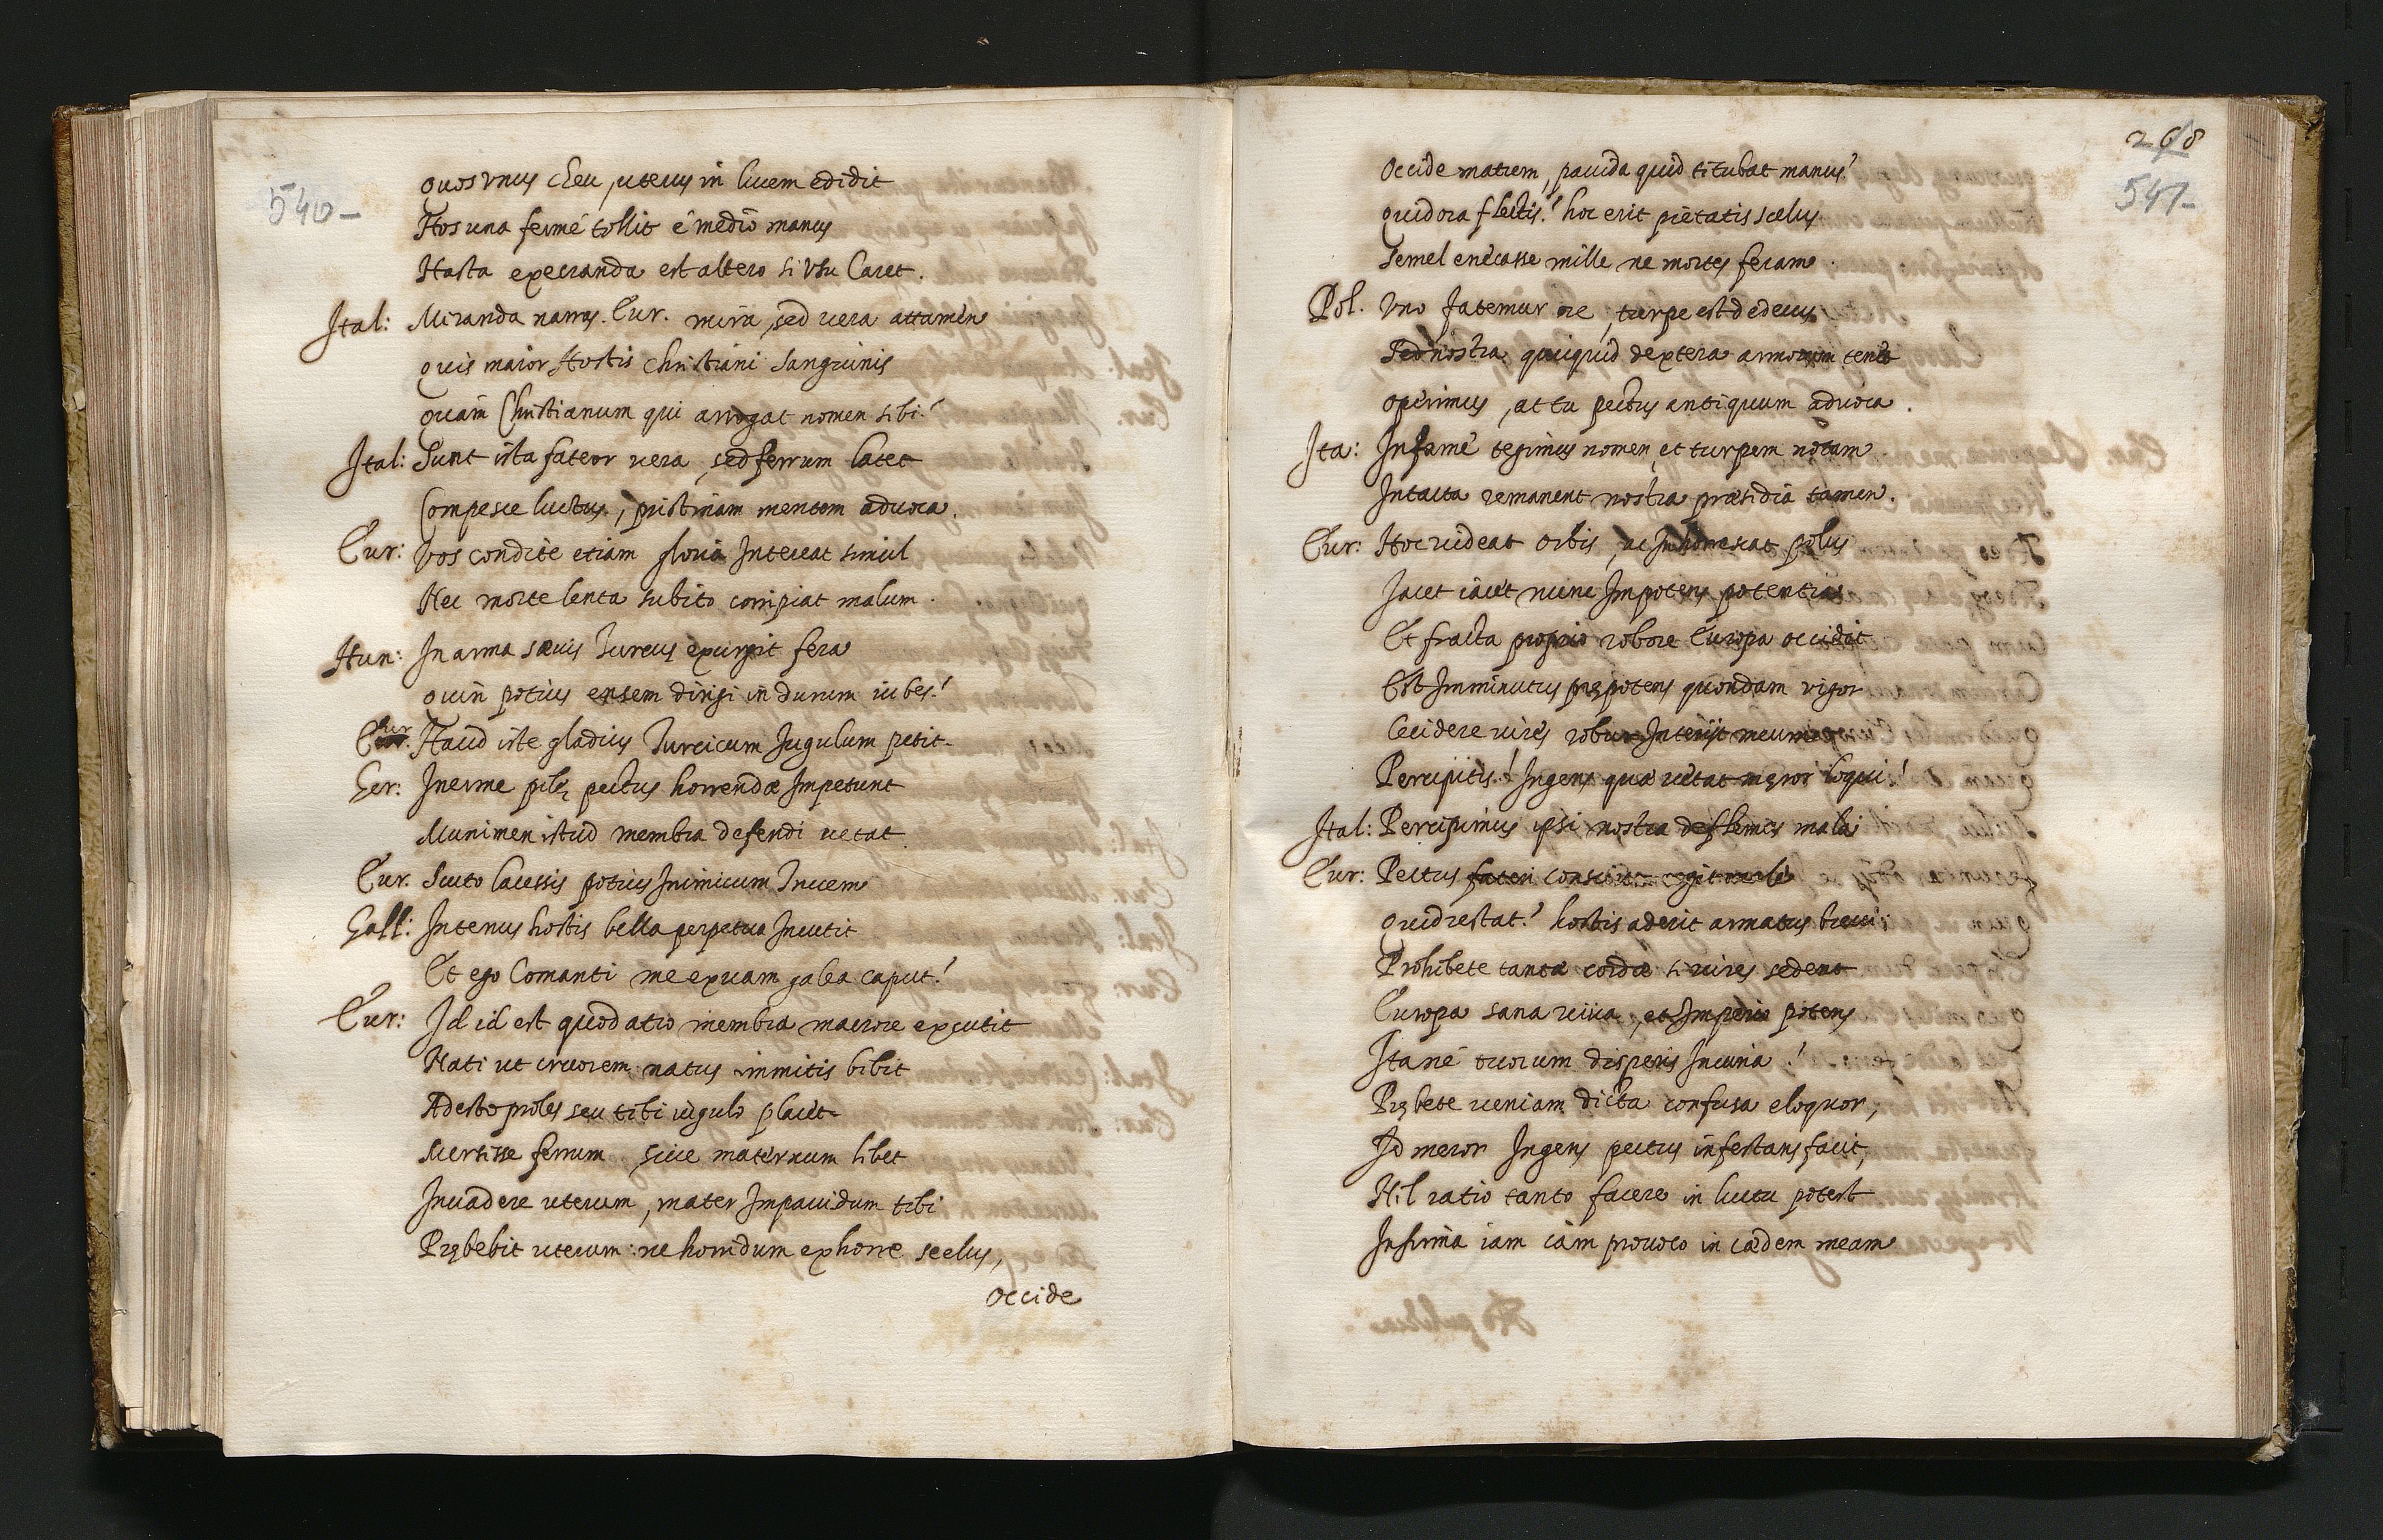 540-
quos vnus eheu, uterus in lucem edidit
Hos una fermè tollit è mediò manus
Hasta execranda est altero si vsu Caret.
Ital: Miranda narras. Eur. mira, sed uera attamen
quis maior Hostis Christiani Sanguinis
quàm Christianum qui arrogat nomen sibi?
Ital: Sunt ista fateor uera, sed ferrum latet
Compesce luctus, pristinam mentem aduoca.
Eur: Vos condite etiam gloria Intereat simul
Nec morte lenta subito corripiat malum.
Hun: In arma sæuis Turcus exurgit fera
quin potius ensem dirigi in durum iubes!
Eur. Haud iste gladius Turcicum Jugulum petit
Ger: Inerme pilæ pectus horrendæ Impetunt
Munimen istud membra defendi uetat.
Eur. Scuto lacessis potius Inimicum Trucem
Gall: Internus hostis bella perpetua Incutit
Et ego Comanti me exuam galea caput!
Eur: Id id est quod atro membra maerore excutit
Nati ut cruorem natus immitis bibit
Adesto proles seu tibi iugulo placet
Mersisse ferrum, siue maternum libet
Inuadere uterum, mater Impauidum tibi
Præbebit uterum: ne horridum exhorre scelus,
Occide
268
541-
Occide matrem, pauida quid titubat manus?
quid ora flectis? hoc erit pietatis scelus
Semel enecasse mille ne mortes feram.
Pol. Vno fatemur ore, turpe est dedecus
Sed nostra quicquid dextera armorum tenet
operimus, at tu pectus antiquum aduoca.
Ita: Infame tegimus nomen, et turpem notam
Intacta remanent nostra præsidia tamen.
Eur: Hoc uideat orbis, ac Inhorrescat polus
Jacet iacet nunc Impotens potentia
Et fracta proprio robore Europa occidit
Est Imminutus præpotens quondam vigor
Cecidere uires robur Interijt meum
Percipitis! Ingens quæ uetat mæror loqui!
Ital: Percipimus ipsi nostra deflemus mala
Eur: Pectus fateri conscium cogit
quid restat? hostis aderit armatus breui
Prohibete tanta corda si uires sedent
Europa sana uiua, et Imperio potens
Itanè tuorum disperis Incuria!
Præbete ueniam dicta confusa eloquor,
Id meror Ingens pectus infestans facit,
Nil ratio tanto facere in luctu potest
Infirma iam iam prouoco in cædem meam